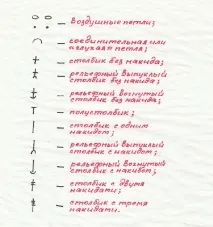 — воздушные петли;
— соединительная или
«глухая» петля;
— столбик без накида;
— рельефный выпуклый
столбик без накида;
— рельефный вогнутый
столбик без накида;
— полустолбик;
— столбик с одним
накидом;
— рельефный выпуклый
столбик с накидом;
— рельефный вогнутый
столбик с накидом;
— столбик с двумя
накидами;
— столбик с тремя
накидами.